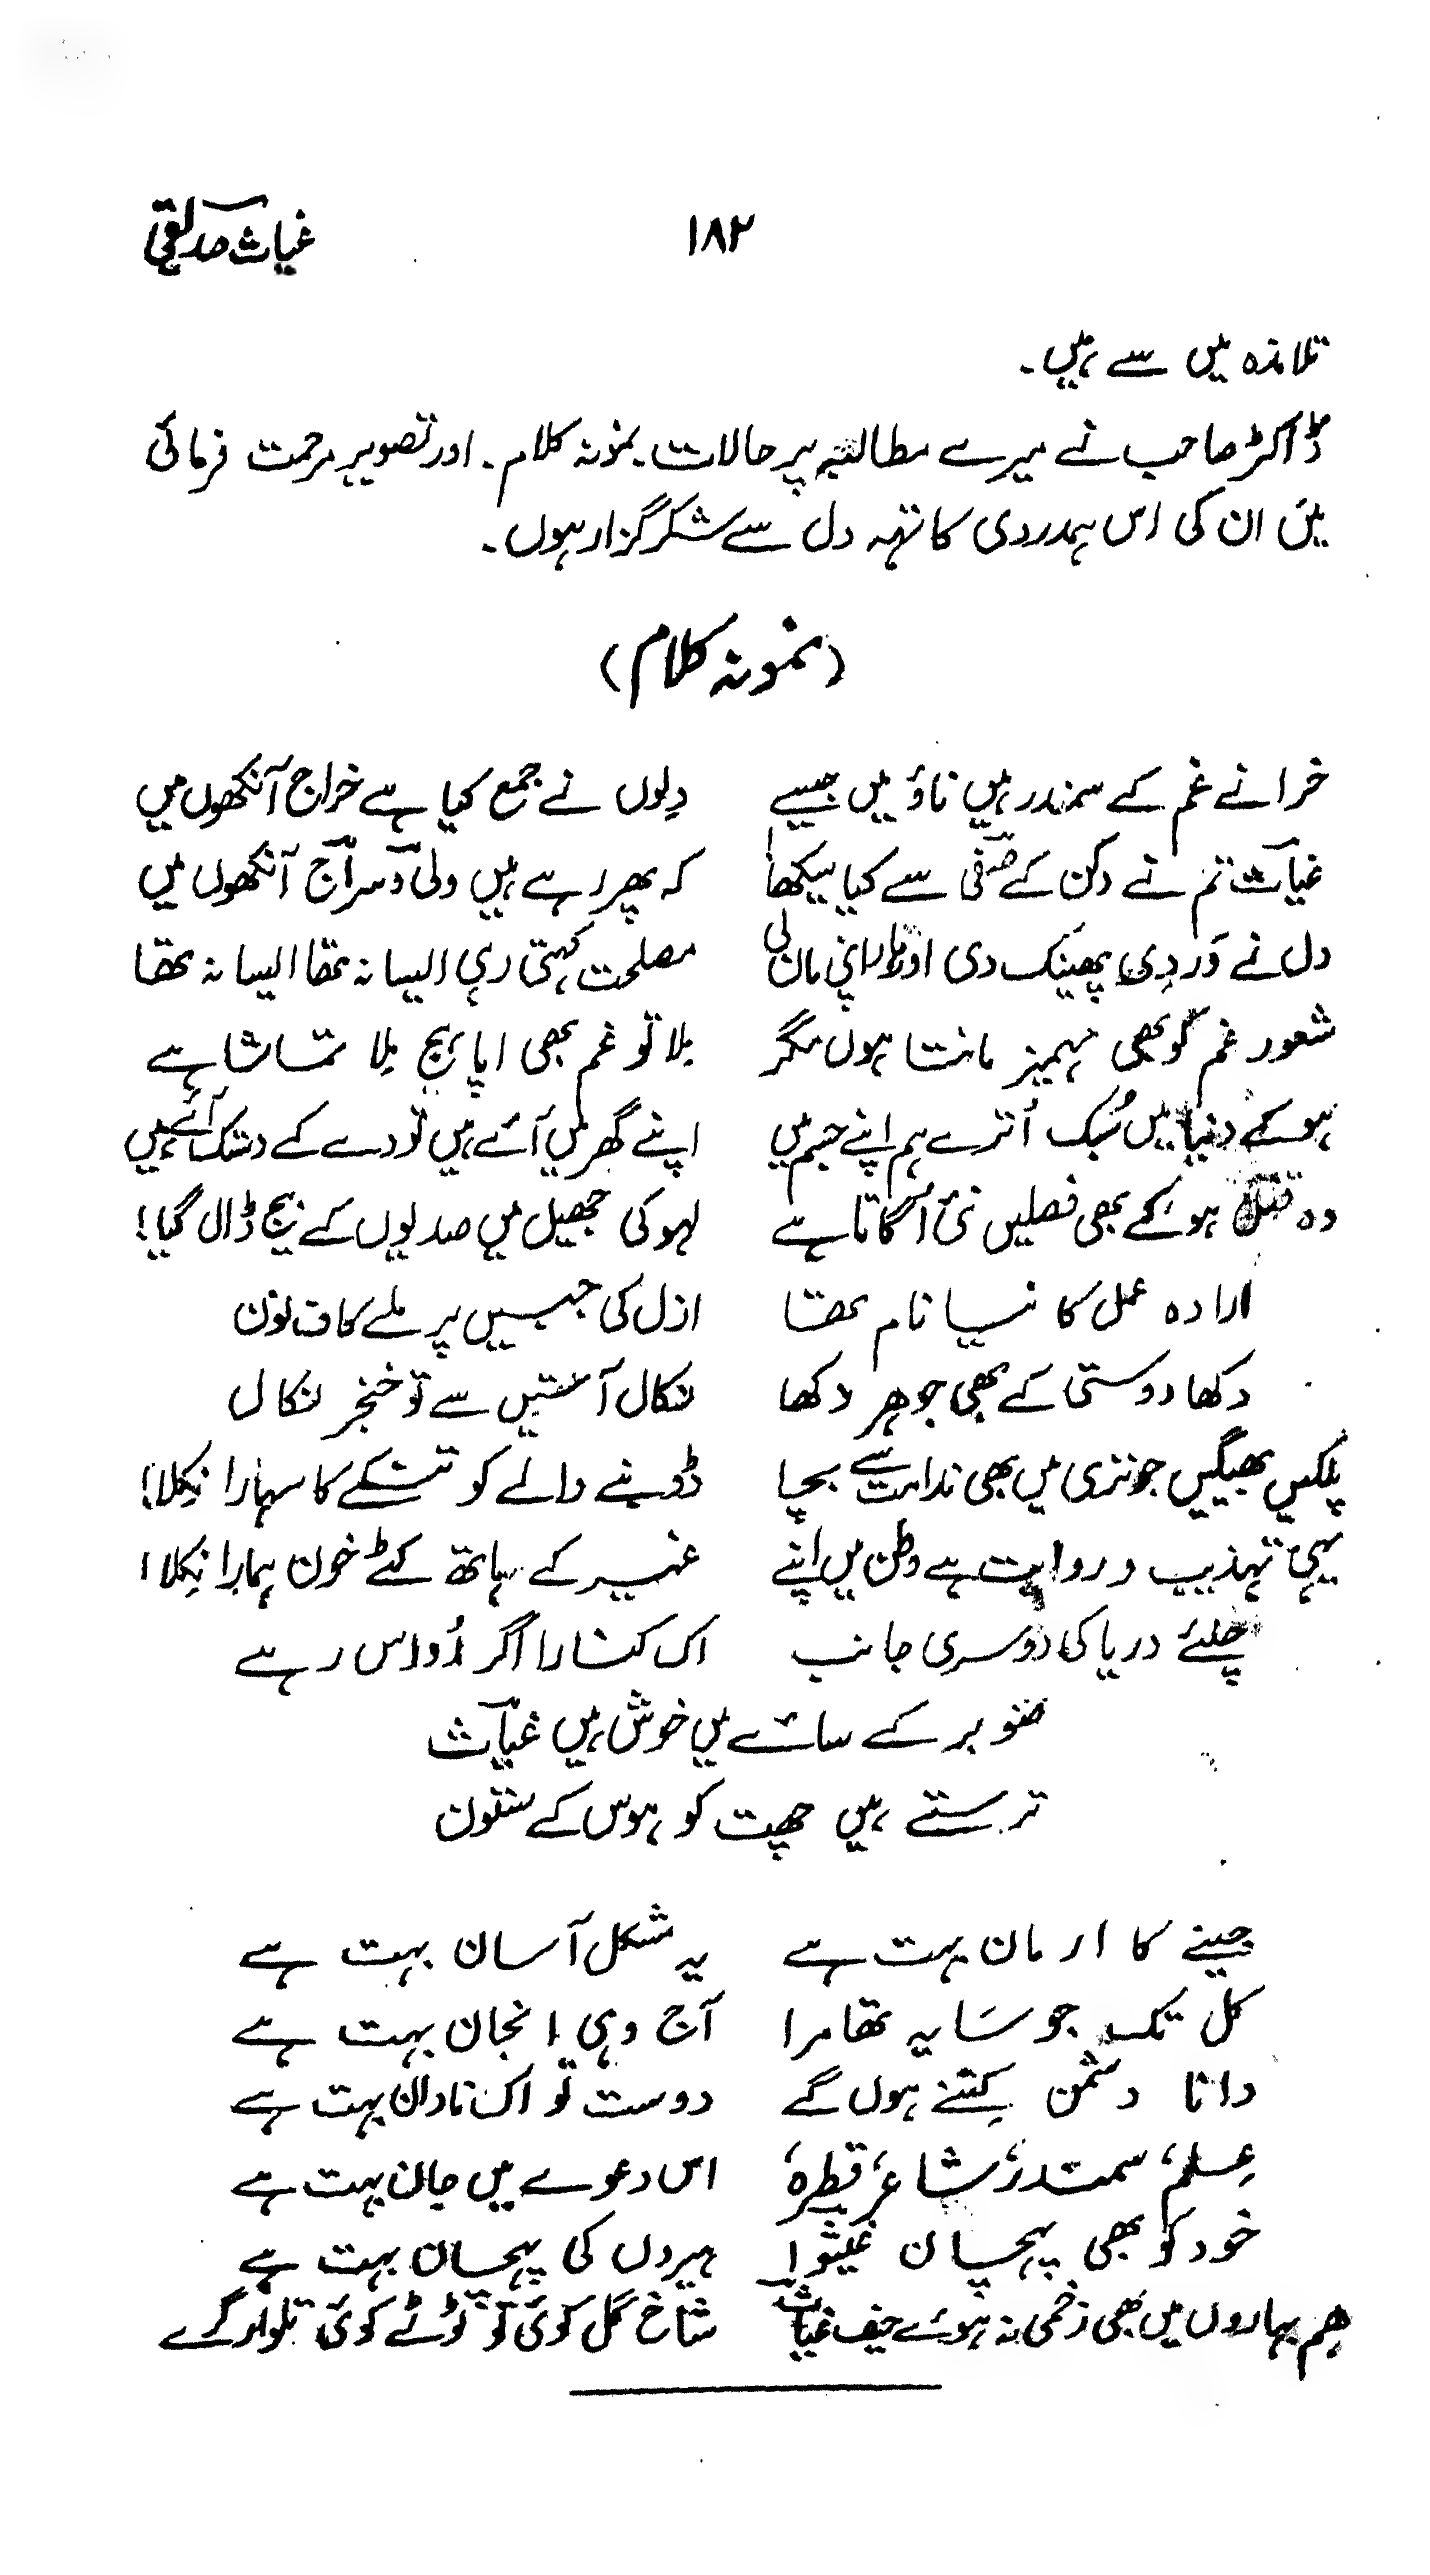 غیاث صدیقی ۱۸۲
تلامذہ میں سے ہیں۔
ڈاکٹر صاحب نے میرے مطالبہ پر حالات۔ نمونہ کلام۔ اور تصویر مرحمت فرمائی
میں ان کی اس ہمدردی کا تہہ دل سے شکر گزار ہوں۔
(نمونہ کلام)
خزانے غم کے سمندر ہیں ناؤ میں جیسے دلوں نے جمع کیا ہے خراج آنکھوں میں
غیاث تم نے دکن کے صفی سے کیا سیکھا کہ پھر رہے ہیں ولی و سراج آنکھوں میں
دل نے وردی پھینک دی اور اپنی مان لی مصلحت کہتی رہی ایسا نہ تھا ایسا نہ تھا
شعور غم کو بھی مہمیز مانتا ہوں مگر بلا تو غم بھی اپاہج بلا تماشا ہے
ہو کے دنیا میں سُبک اُترے ہم اپنے جسم میں اپنے گھر میں آئے ہیں تو دے کے دستک آئے ہیں
وہ قتل ہو کے بھی فصلیں نئی اُگاتا ہے لہو کی جھیل میں صدیوں کے بیج ڈال گیا!
ارادہ عمل کا نیا نام تھا ازل کی جبیں پر ملے کاف نون
دکھا دوستی کے بھی جوہر دکھا نکال آستیں سے تو خنجر نکال
پلکیں بھیگیں جو تری میں بھی ندامت سے بچا ڈوبنے والے کو تنکے کا سہارا نکلا!
یہی تہذیب و روایت ہے وطن میں اپنے غیر کے ہاتھ کٹے خون ہمارا نکلا!
چلئے دریا کی دوسری جانب اک کنارا اگر اُداس رہے
صنوبر کے سائے میں خوش ہیں غیاث
ترستے ہیں چھت کو ہوس کے ستون
جینے کا ارمان بہت ہے یہ مشکل آسان بہت ہے
کل تک جو سایہ تھا مرا آج وہی انجان بہت ہے
دانا دشمن کتنے ہوں گے دوست تو اک نادان بہت ہے
علم، سمندر، شاعر، قطرہ، اس دعوے میں جان بہت ہے
خود کو بھی پہچان غیثوا ہیروں کی پہچان بہت ہے
ہم بہاروں میں بھی زخمی نہ ہوئے حیف غیاث شاخ گل کوئی تو ٹوٹے کوئی تلوار گرے